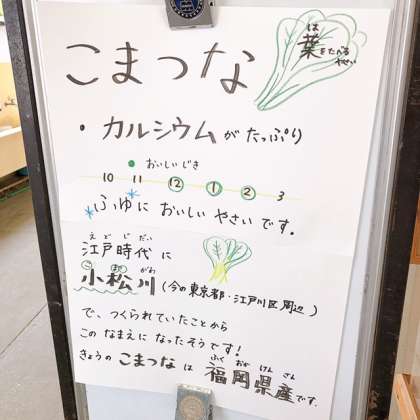 こまつな
は
葉をたべる
やさい
・カルシウムがたっぷり
●おいしいじき
10 11 12 1 2 3
*ふゆにおいしいやさいです。
えどじだい
江戸時代に
こまつがわ
小松川(今の東京都・江戸川区周辺)
で、つくられていたことから
このなまえになったそうです!
ふくおかけんさん
きょうのこまつなは福岡県産です。